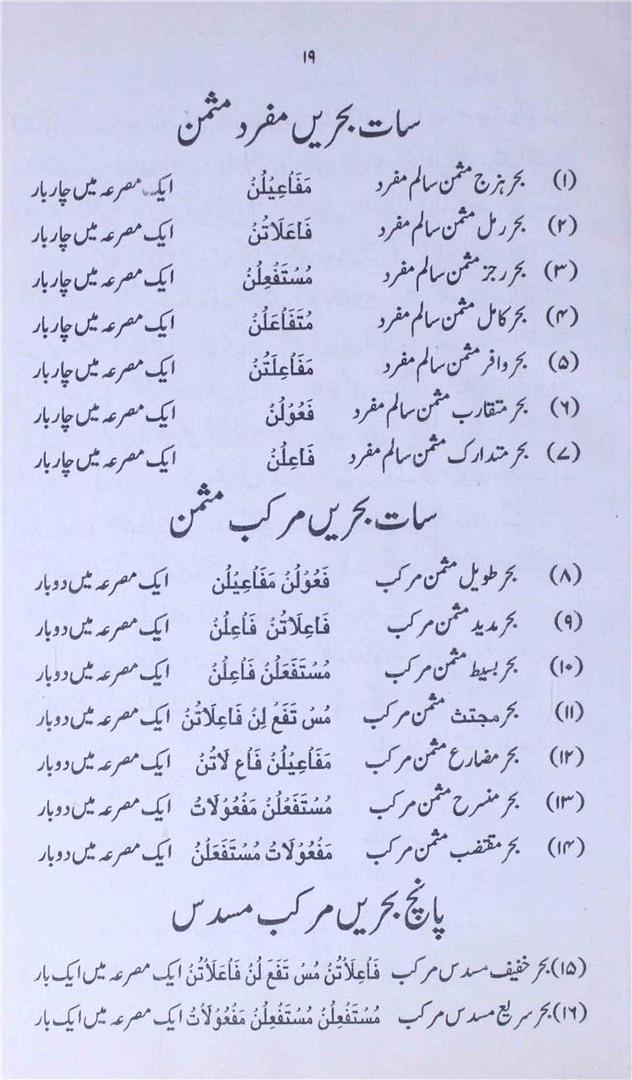 ۱۹
سات بحریں مفرد مثمن
(۱) بحر ہزج مثمن سالم مفرد مَفَاعِیْلُنْ ایک مصرعہ میں چار بار
(۲) بحر رمل مثمن سالم مفرد فَاعَلَاتُنْ ایک مصرعہ میں چار بار
(۳) بحر رجز مثمن سالم مفرد مُسْتَفْعِلُنْ ایک مصرعہ میں چار بار
(۴) بحر کامل مثمن سالم مفرد مُتَفَاعَلُنْ ایک مصرعہ میں چار بار
(۵) بحر وافر مثمن سالم مفرد مَفَاعِلَتُنْ ایک مصرعہ میں چار بار
(۶) بحر متقارب مثمن سالم مفرد فَعُوْلُنْ ایک مصرعہ میں چار بار
(۷) بحر متدارک مثمن سالم مفرد فَاعِلُنْ ایک مصرعہ میں چار بار
سات بحریں مرکب مثمن
(۸) بحر طویل مثمن مرکب فَعُوْلُنْ مَفَاعِیْلُنْ ایک مصرعہ میں دو بار
(۹) بحر مدید مثمن مرکب فَاعِلَاتُنْ فَاعِلُنْ ایک مصرعہ میں دو بار
(۱۰) بحر بسیط مثمن مرکب مُسْتَفْعَلُنْ فَاعِلُنْ ایک مصرعہ میں دو بار
(۱۱) بحر مجتث مثمن مرکب مُسْ تَفْعْ لِنْ فَاعِلَاتُنْ ایک مصرعہ میں دو بار
(۱۲) بحر مضارع مثمن مرکب مَفَاعِیْلُنْ فَاعِ لَاتُنْ ایک مصرعہ میں دو بار
(۱۳) بحر منسرح مثمن مرکب مُسْتَفْعَلُنْ مَفْعُوْلَاتُ ایک مصرعہ میں دو بار
(۱۴) بحر مقتضب مثمن مرکب مَفْعُوْلَاتُ مُسْتَفْعَلُنْ ایک مصرعہ میں دو بار
پانچ بحریں مرکب مسدس
(۱۵) بحر خفیف مسدس مرکب فَاعِلَاتُنْ مُسْ تَفْعِ لُنْ فَاعَلَاتُنْ ایک مصرعہ میں ایک بار
(۱۶) بحر سریع مسدس مرکب مُسْتَفْعِلُنْ مُسْتَفْعِلُنْ مَفْعُوْلَاتُ ایک مصرعہ میں ایک بار